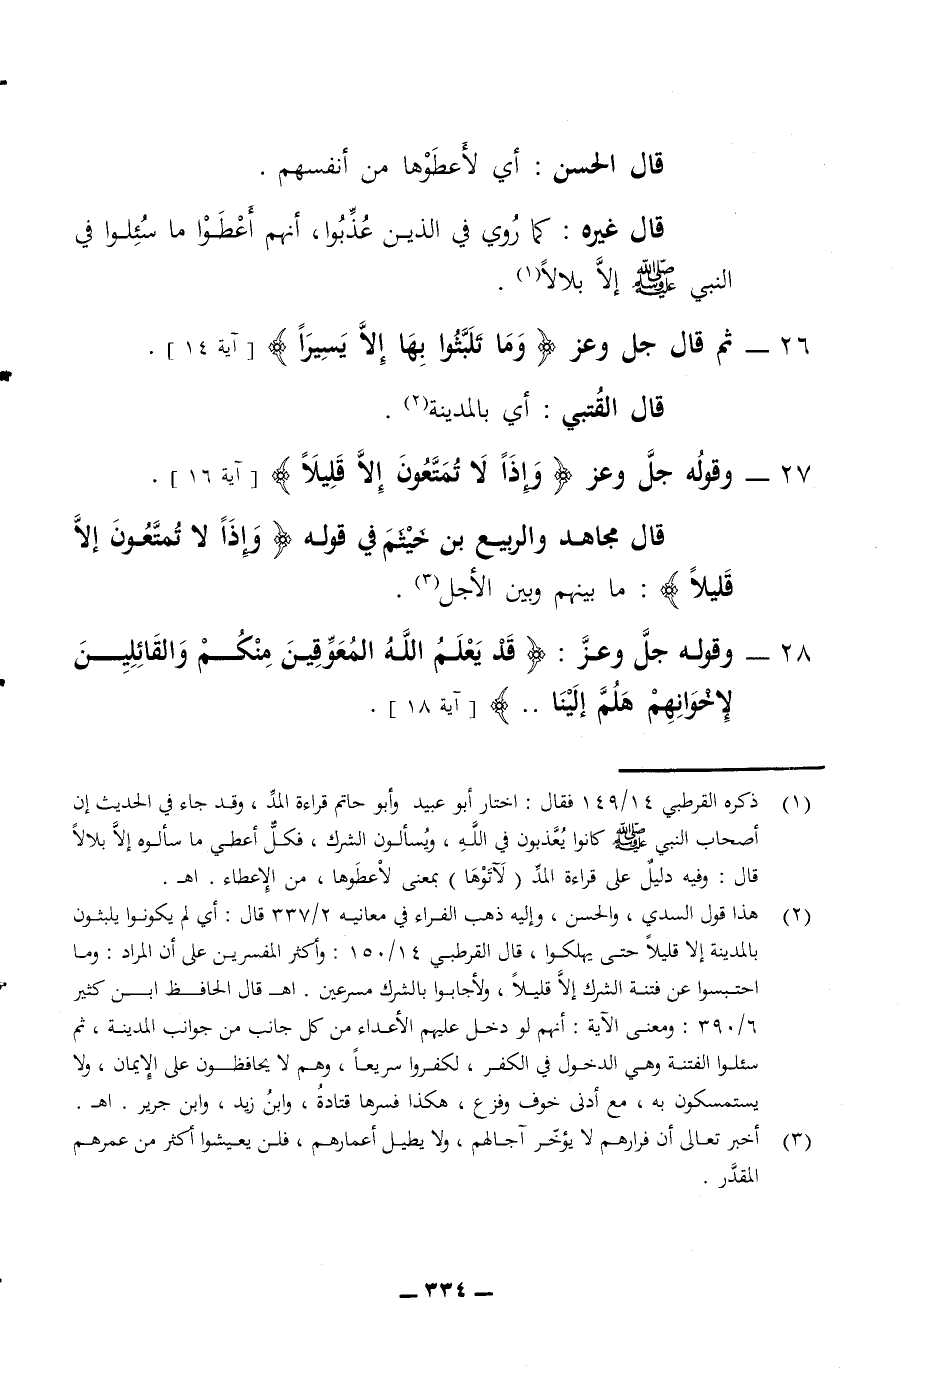 قال الحسن : أي لأَعطَوْها من أنفسهم .
قال غيره : كما رُوي في الذيـن عُذِّبُوا، أنهم أَعْطَـوْا ما سُئِلـوا في
النبي ﷺ إلاَّ بلالاً(١) .
٢٦ ــ ثم قال جل وعز ﴿ وَمَا تَلَبَّثُوا بِهَا إِلاَّ يَسِيرَاً ﴾ [ آية ١٤ ] .
قال القُتبي : أي بالمدينة(٢) .
٢٧ ــ وقولُه جلَّ وعز ﴿ وَإِذَاً لَا تُمَتَّعُونَ إِلاَّ قَلِيلَاً ﴾ [ آية ١٦ ] .
قال مجاهـد والربيـع بن خَيْثَمَ في قولـه ﴿ وَإِذَاً لا تُمتَّعُـونَ إلاَّ
قَليلاً ﴾ : ما بينهم وبين الأجل(٣) .
٢٨ ــ وقولـه جلَّ وعـزَّ : ﴿ قَدْ يَعْلَـمُ اللَّهُ المُعَوِّقِيـنَ مِنْكُـــمْ وَالقَائِلِيـــنَ
لِإخْوَانِهِمْ هَلُمَّ إِلَيْنَا .. ﴾ [ آية ١٨ ] .
(١) ذكره القرطبي ١٤٩/١٤ فقال : اختار أبو عبيد وأبو حاتم قراءة المدِّ ، وقـد جاء في الحديث إن
أصحاب النبي ﷺ كانوا يُعَّذبون في اللَّهِ ، ويُسألـون الشرك ، فكـلٌّ أعطـي ما سألـوه إلاَّ بلالاً
قال : وفيه دليلٌ على قراءة المدِّ ( لَآتَوْهَا ) بمعنى لأعطَوها ، من الإعطاء . اهـ .
(٢) هذا قول السدي ، والحسن ، وإليه ذهب الفـراء في معانيـه ٣٣٧/٢ قال : أي لم يكونـوا يلبثـون
بالمدينة إلا قليلاً حتـى يهلكـوا ، قال القرطبـي ١٥٠/١٤ : وأكثر المفسريـن على أن المراد : ومـا
احتـبسوا عن فتنـة الشرك إلاَّ قليـلاً ، ولأجابـوا بالشرك مسرعين . اهـ قال الحافـظ ابـن كثير
٣٩٠/٦ : ومعنـى الآية : أنهم لو دخـل عليهم الأعداء من كل جانـب من جوانب المدينـة ، ثم
سئلـوا الفتنـة وهـي الدخـول في الكفـر ، لكفـروا سريعـاً ، وهـم لا يحافظـون على الإيمان ، ولا
يستمسكون به ، مع أدنى خوف وفزع ، هكذا فسرها قتادةُ ، وابنُ زيد ، وابن جرير . اهـ .
(٣) أخبر تعـالى أن فرارهـم لا يؤخّـر آجـالهم ، ولا يطيـل أعمارهـم ، فلـن يعـيشوا أكثر من عمرهـم
المقدَّر .
ــ ٣٣٤ ــ